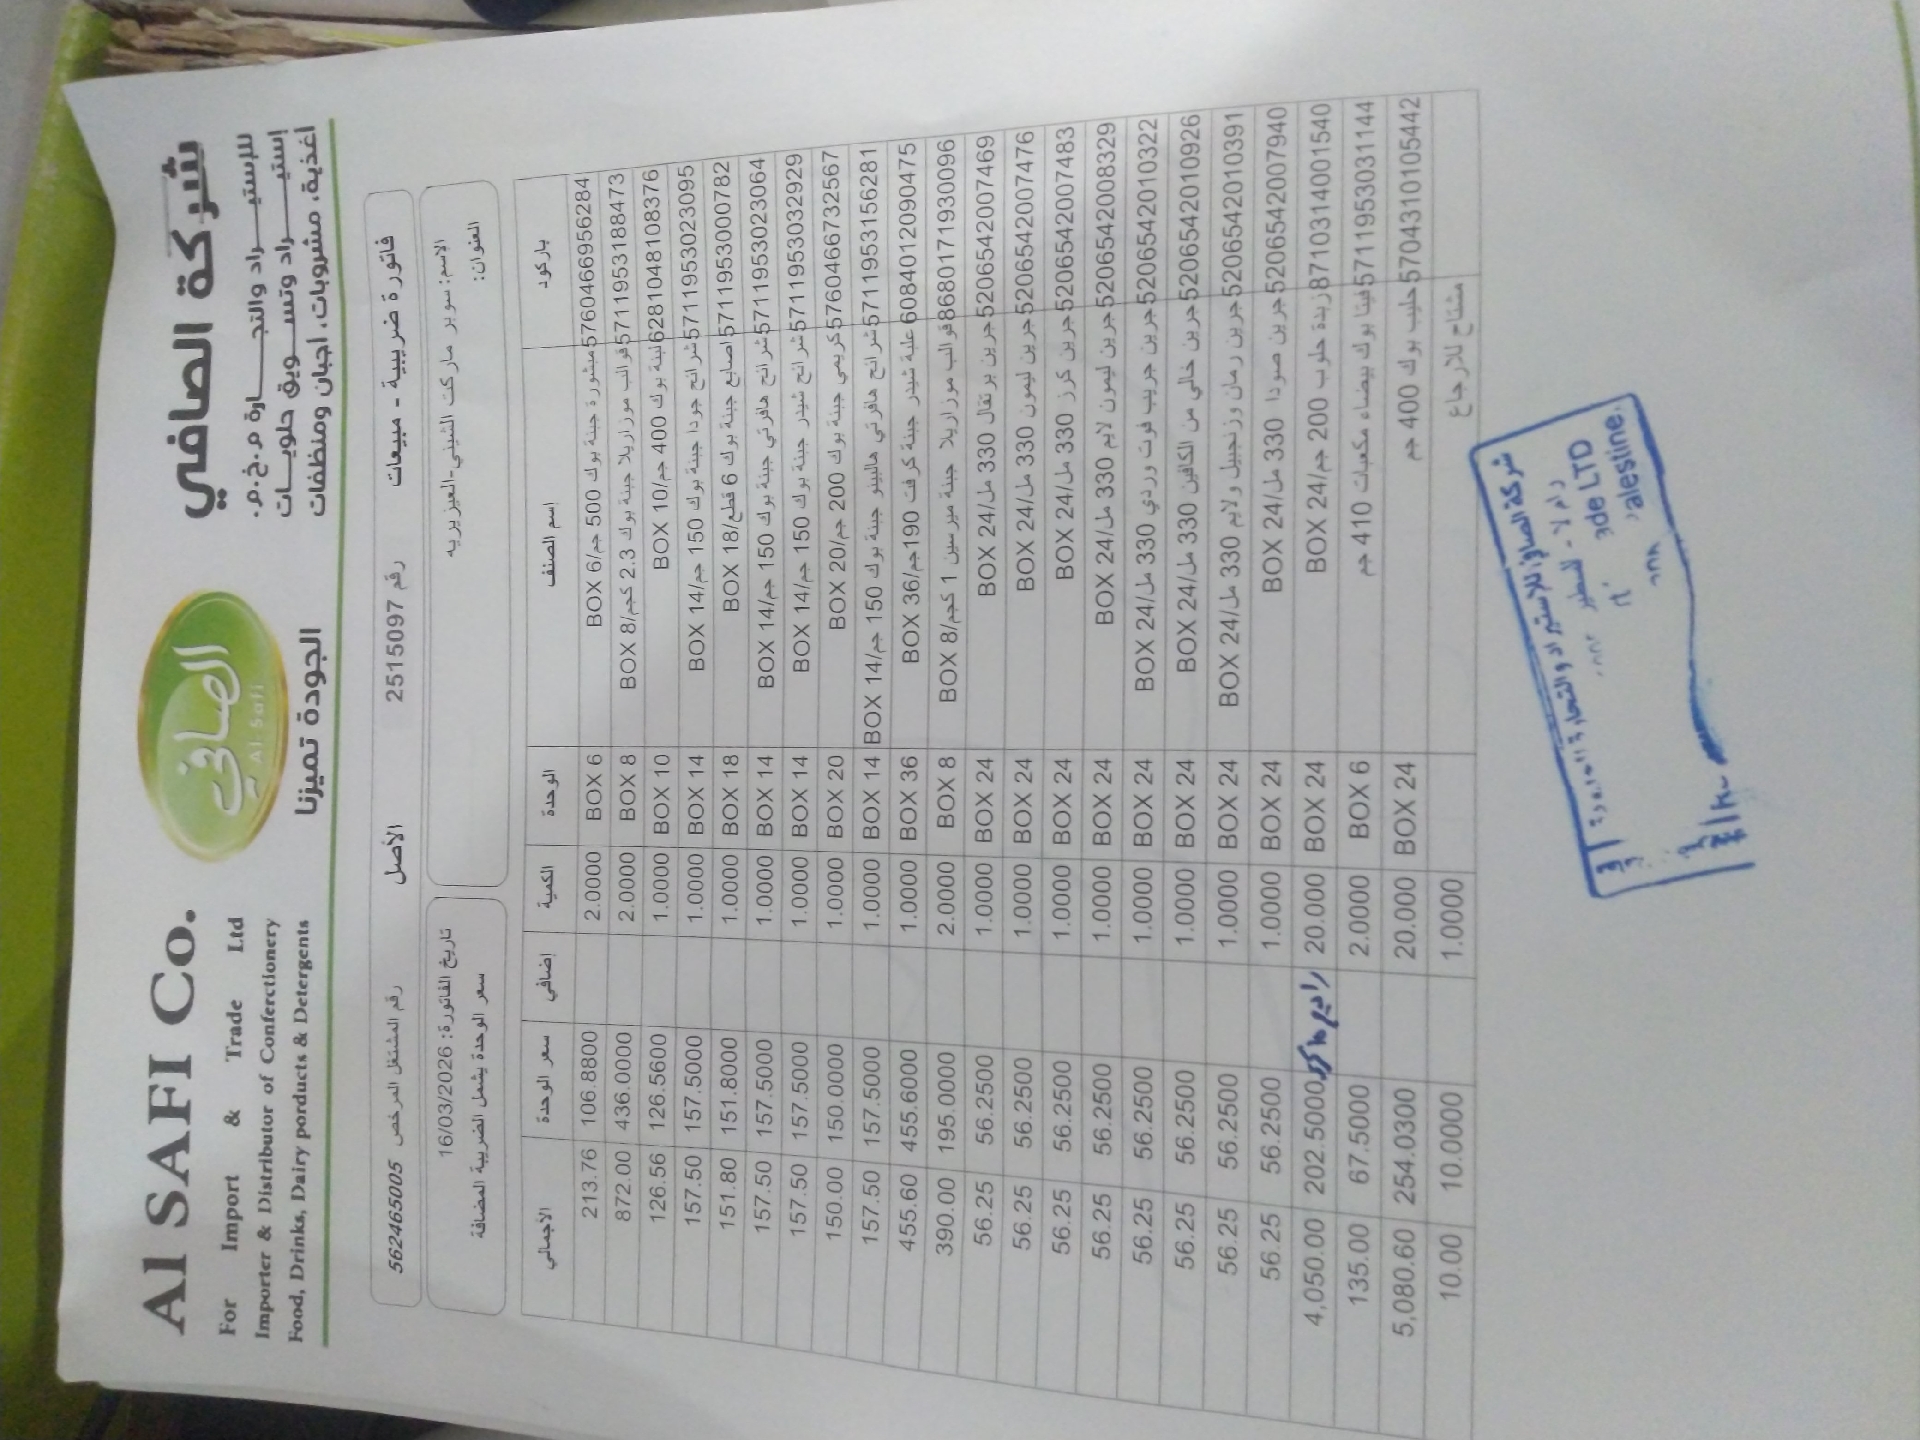 AL SAFI Co.
For Import & Trade Ltd
Importer & Distributor of Conferctionery
Food, Drinks, Dairy porducts & Detergents
الصافي
AL Safi
الجودة تميزنا
شركة الصافي
للإستيـــراد والتجـــارة م.خ.م.
إستيـــراد وتســـويق حلويـــات
اغذية، مشروبات، أجبان ومنظفات
فاتورة ضريبية - مبيعات رقم 2515097 الأصل رقم المشتغل المرخص 562465005
الإسم: سوبر ماركت الشيني-العيزيريه
العنوان:
تاريخ الفاتورة: 16/03/2026
سعر الوحدة يشمل الضريبة المضافة
باركود إسم الصنف الوحدة الكمية إضافي سعر الوحدة الاجمالي
5760466956284 مبشورة جبنة بوك 500 جم/BOX 6 BOX 6 2.0000 106.8800 213.76
5711953188473 قوالب موزاريلا جبنة بوك 2.3 كجم/BOX 8 BOX 8 2.0000 436.0000 872.00
6281048108376 لبنة بوك 400 جم/BOX 10 BOX 10 1.0000 126.5600 126.56
5711953023095 شرائح جودا جبنة بوك 150 جم/BOX 14 BOX 14 1.0000 157.5000 157.50
5711953000782 اصابع جبنة بوك 6 قطع/BOX 18 BOX 18 1.0000 151.8000 151.80
5711953023064 شرائح هافرتي جبنة بوك 150 جم/BOX 14 BOX 14 1.0000 157.5000 157.50
5711953032929 شرائح شيدر جبنة بوك 150 جم/BOX 14 BOX 14 1.0000 157.5000 157.50
5760466732567 كريمي جبنة بوك 200 جم/BOX 20 BOX 20 1.0000 150.0000 150.00
5711953156281 شرائح هافرتي هالبينو جبنة بوك 150 جم/BOX 14 BOX 14 1.0000 157.5000 157.50
6084012090475 علبة شيدر جبنة كرفت 190جم/BOX 36 BOX 36 1.0000 455.6000 455.60
8680171930096 قوالب موزاريلا جبنة ميرسين 1 كجم/BOX 8 BOX 8 2.0000 195.0000 390.00
5206542007469 جرين برتقال 330 مل/BOX 24 BOX 24 1.0000 56.2500 56.25
5206542007476 جرين ليمون 330 مل/BOX 24 BOX 24 1.0000 56.2500 56.25
5206542007483 جرين كرز 330 مل/BOX 24 BOX 24 1.0000 56.2500 56.25
5206542008329 جرين ليمون لايم 330 مل/BOX 24 BOX 24 1.0000 56.2500 56.25
5206542010322 جرين جريب فوت وردي 330 مل/BOX 24 BOX 24 1.0000 56.2500 56.25
5206542010926 جرين خالي من الكافين 330 مل/BOX 24 BOX 24 1.0000 56.2500 56.25
5206542010391 جرين رمان وزنجبيل ولايم 330 مل/BOX 24 BOX 24 1.0000 56.2500 56.25
5206542007940 جرين صودا 330 مل/BOX 24 BOX 24 1.0000 56.2500 56.25
8710314001540 زبدة حلوب 200 جم/BOX 24 BOX 24 20.000 202.5000 4,050.00
5711953031144 فيتا بوك بيضاء مكعبات 410 جم BOX 6 2.0000 67.5000 135.00
5704310105442 حليب بوك 400 جم BOX 24 20.000 254.0300 5,080.60
مشتاح للارجاع 1.0000 10.0000 10.00
شركة الصافي للإستيراد والتجارة
ade LTD
alestine